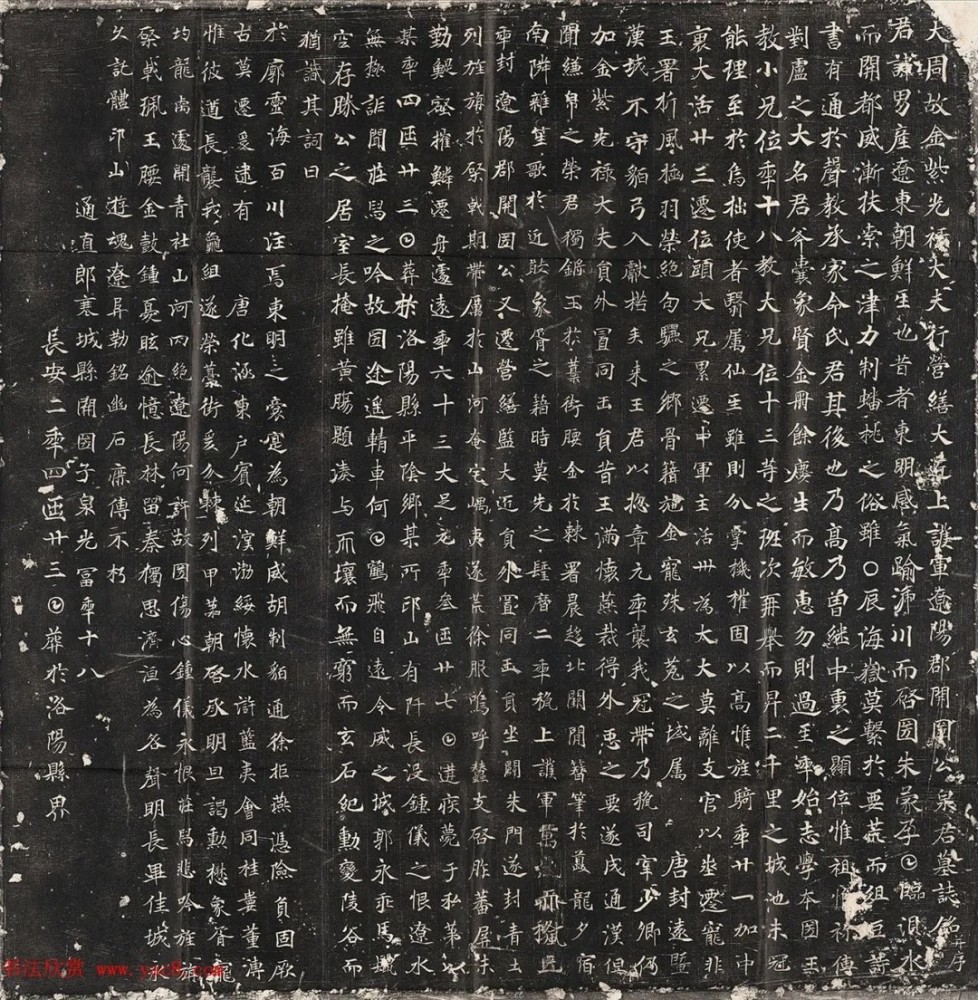 大周故金紫光祿大夫行營繕大匠上護軍遼陽郡開圀公泉君墓誌銘并序
君諱男產遼東朝鮮𤯔也昔者東明感氣踰㴲川而啓圀朱蒙孕𡆠臨浿水
而開都威漸扶索之津力制蟠桃之俗雖〇辰海嶽莫繫於要荒而俎豆詩
書有通於聲教承家命氏君其後也乃高乃曾繼中裏之顯位惟祖惟禰傳
對盧之大名君斧囊象賢金冊餘慶生而敏惠勿則過𤯔年始志學本圀王
教小兄位年十八教大兄位十三等之班次再舉而昇二千里之城池未冠
能理至於烏拙使者翳屬仙𤯔雖則分掌機權固以高惟旌騎年廿一加中
裏大活廿三遷位頭大兄累遷中軍主活卅為太大莫離支官以坐遷寵非
王署折風插羽榮絕句驪之鄉骨籍施金寵殊玄菟之域屬　唐封遠暨
漢城不守貊弓入獻楛矢來王君以揔章元年襲我冠帶乃授司宰少卿仍
加金紫光祿大夫員外置同正員昔王滿懷燕裁得外𢘑之要遂成通漢但
聞縑帛之榮君獨鏘玉於藁街腰金於棘署晨趍北闕閒簪筆於夔龍夕宿
南隣雜笙歌於近貶象胥之籍時莫先之聖曆二年授上護軍萬歲
年封遼陽郡開圀公又遷營繕監大匠員外置同正員坐闢朱門遂封青
列旌旆於棨戟期帶礪於山河奄宅嵎夷遂荒徐服嗚呼蠶支啓胙蕃屏未
勤鯤壑摧鱗遷舟遽遠年六十三大足元年參𠥱廿七𡆠遘疾薨于私第以
某年四𠥱廿三𡆠葬於洛陽縣平陰鄉某所邙山有阡長沒鍾儀之恨遼水
無極詎聞莊舄之吟故圀途遙輤車何𡆠鶴飛自遠令威之城郭永乖馬鬣
空存滕公之居室長掩雖黃腸題湊与𠀑壤而無窮而玄石紀勳變陵谷而
猶識其詞曰
於廓靈海百川注焉東明之裔寔為朝鮮威胡制貊通徐拒燕憑險負固厥
古莫遷爰逮有　唐化涵東戶賓延溟渤綏懷水滸藍夷會同桂婁董溥
惟彼遒長襲我龜組遂榮藁街爰分棘列甲第朝啓承明旦謁勳懋象胥寵
均龍卨遽開青社山河內絕遼陽何許故圀傷心鍾儀永恨莊舄悲吟旌
棨戟珮玉腰金鼓鍾憂眩逾憶長林留秦獨思濟洹為咎聲明長畢佳城
久託體邙山遊魂遼㫷勒銘幽石庶傳不朽
通直郎襄城縣開圀子泉光富年十八
長安二年四𠥱廿三𡆠葬於洛陽縣界
书法欣赏 www.yac8.com